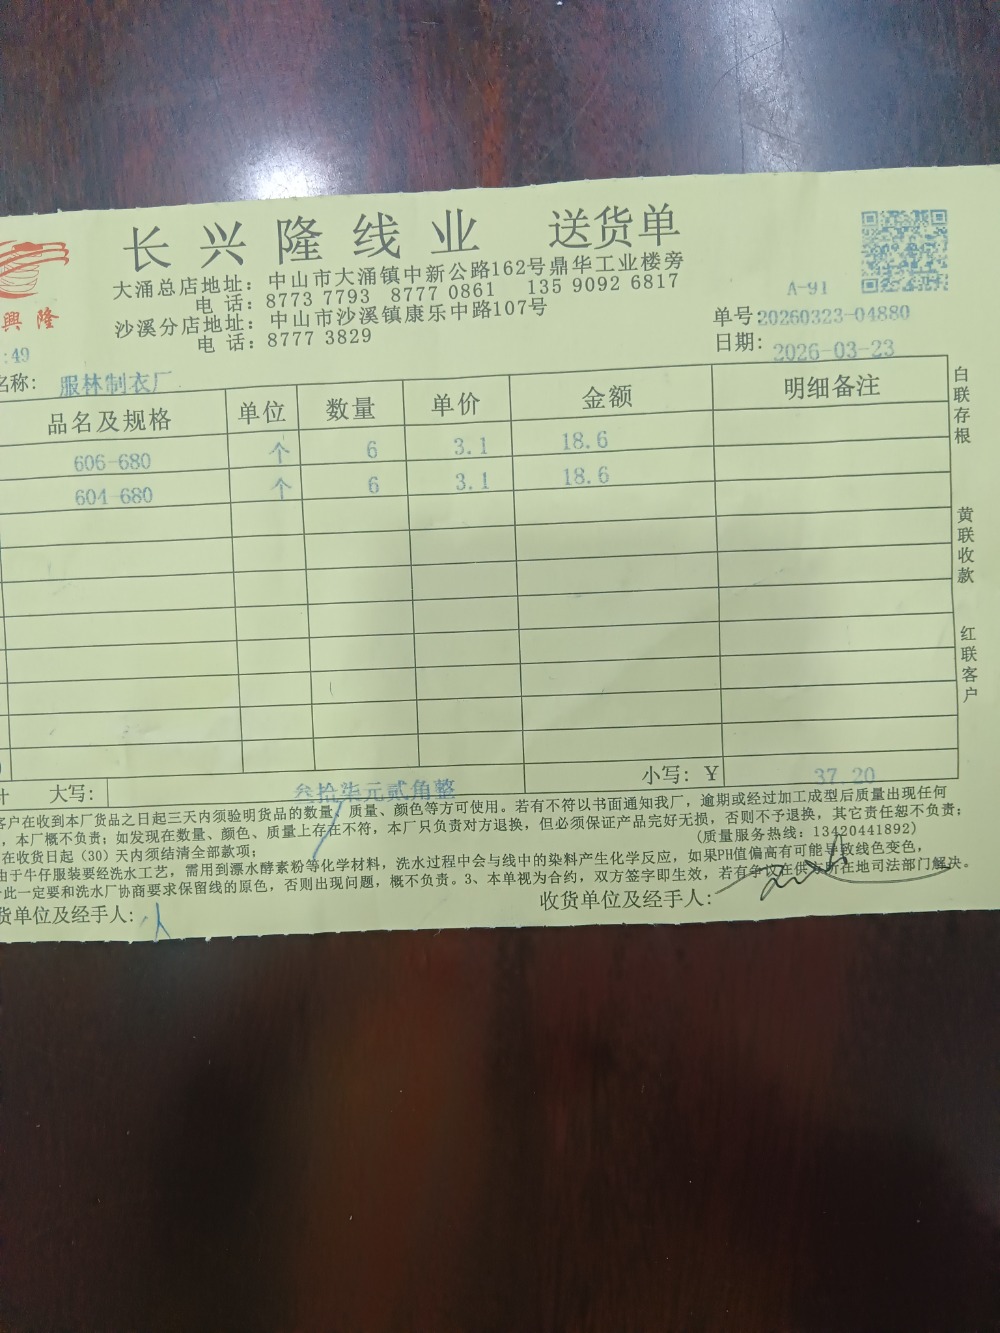 长兴隆线业 送货单
大涌总店地址：中山市大涌镇中新公路162号鼎华工业楼旁
电 话：8773 7793 8777 0861 135 9092 6817
沙溪分店地址：中山市沙溪镇康乐中路107号
电 话：8777 3829
興隆
A-91
单号:20260323-04880
日期: 2026-03-23
:49
名称: 服林制衣厂
品名及规格 单位 数量 单价 金额 明细备注
606-680 个 6 3.1 18.6
604-680 个 6 3.1 18.6
大写: 叁拾柒元贰角整 小写: ￥ 37.20
白联存根
黄联收款
红联客户
客户在收到本厂货品之日起三天内须验明货品的数量、质量、颜色等方可使用。若有不符以书面通知我厂，逾期或经过加工成型后质量出现任何
，本厂概不负责；如发现在数量、颜色、质量上存在不符，本厂只负责对方退换，但必须保证产品完好无损，否则不予退换，其它责任恕不负责；
在收货日起（30）天内须结清全部款项； （质量服务热线：13420441892）
由于牛仔服装要经洗水工艺，需用到漂水酵素粉等化学材料，洗水过程中会与线中的染料产生化学反应，如果PH值偏高有可能导致线色变色，
此一定要和洗水厂协商要求保留线的原色，否则出现问题，概不负责。3、本单视为合约，双方签字即生效，若有争议在供方所在地司法部门解决。
货单位及经手人: 收货单位及经手人: